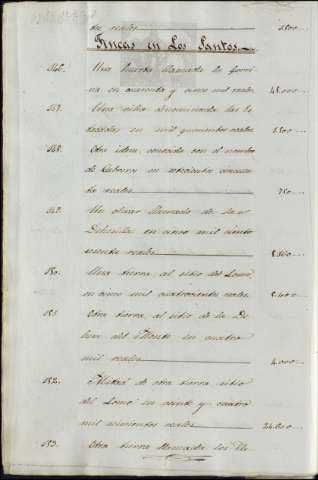 de reales 1.500
Fincas en Los Santos.
146. Una huerta llamada la
na en cuarenta y cinco mil reales 45.000
147. Una viña denominada las
en mil quinientos reales 1.500
148. Otra idem, conocida con el nombre
de en setecientos cincuen
ta reales 750
149. Un olivar llamado de las
en cinco mil ciento
sesenta reales 5.160
150. Una tierra al sitio del Lomo
en cinco mil cuatrocientos reales 5.400
151. Otra tierra al sitio de la De
hesa del Monte en cuatro
mil reales 4.000
152. Mitad de otra tierra sitio
del Lomo en veinte y cuatro
mil seiscientos reales 24.600
153. Otra tierra llamada los